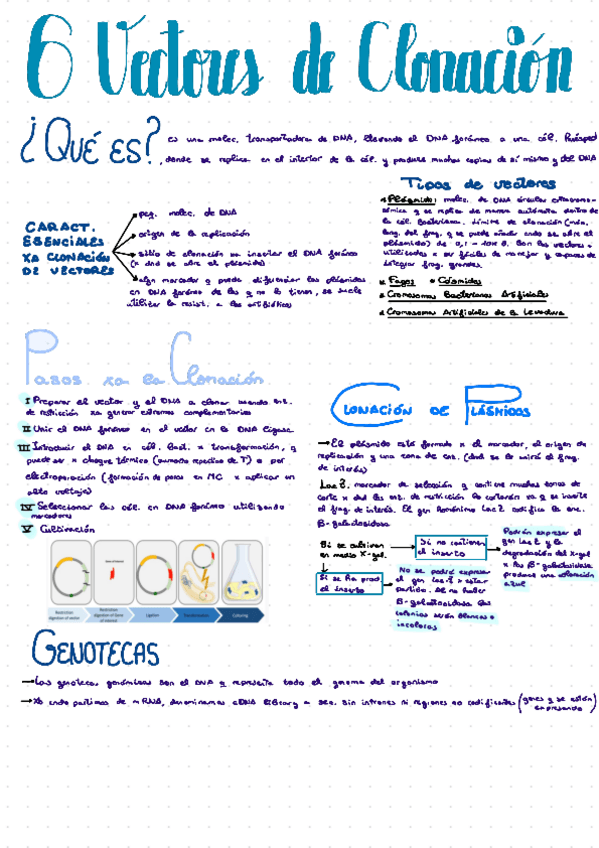 6 Vectores de Clonación
¿Qué es?
es una molec. transportadora de DNA, llevando el DNA foráneo a una cél. huésped
, donde se replica en el interior de la cél. y produce muchas copias de sí mismo y del DNA
CARACT.
ESENCIALES
xa CLONACIÓN
DE VECTORES
peq. molec. de DNA
origen de la replicación
sitio de clonación xa insertar el DNA foráneo
(x dnd se abre el plásmido)
algn marcador q puede diferenciar los plásmidos
en DNA foráneo de los q no lo tienen, se suele
utilizar la resist. a los antibióticos
Tipos de vectores
Plásmido: molec. de DNA circular extracromo-
sómica q se replica de manera autónoma dentro de
la cél. bacteriana. Límite de clonación
long. del frag. q se puede añadir cndo se abre el
plásmido) de 0,1 - 10kb. Son los vectores +
utilizados x ser fáciles de manejar y capaces de
integrar frag. grandes.
Fagos Cósmidos
Cromosomas Bacterianos Artificiales
Cromosomas Artificiales de la Levadura
Pasos xa la Clonación
I Preparar el vector y el DNA a clonar usando enz.
de restricción xa generar extremos complementarios
II Unir el DNA foráneo en el vector cn la DNA ligasa
III Introducir el DNA en cél. bact. x transformación, q
puede ser x choque térmico (aumento repentino de T) o por
electroporación (formación de poros en MC x aplicar un
alto voltaje)
IV Seleccionar las cél. cn DNA foráneo utilizando
marcadores
V Cultivación
Restriction
digestion of vector
Restriction
digestion of Gene
of interest
Ligation
Transformation
Culturing
CLONACIÓN DE PLÁSMIDOS
→El plásmido está formado x el marcador, el origen de
replicación y una zona de cns. (dnd se le unirá el frag.
de interés)
Lac Z. marcador de selección q contiene muchas zonas de
corte x dnd las enz. de restricción lo cortarán xa q se inserte
el frag. de interés. El gen homónimo Lac Z codifica la enz.
B-galactosidasa
Si se cultivan
en medio X-gal.
Si no contienen
el inserto
Podrán expresar el
gen Lac Z y la
degradación del X-gal
x la β-galactosidasa
produce una coloración
azul
Si se ha prod
el inserto
No se podrá expresar
el gen Lac-Z x estar
partido. Al no haber
B-galactosidasa las
colonias serán blancas o
incoloras
GENOTECAS
→Las genotecas genómicas son el DNA q representa todo el genoma del organismo
→Xo cndo partimos de mRNA, denominamos cDNA library a sec. sin intrones ni regiones no codificantes (genes q se están
expresando)